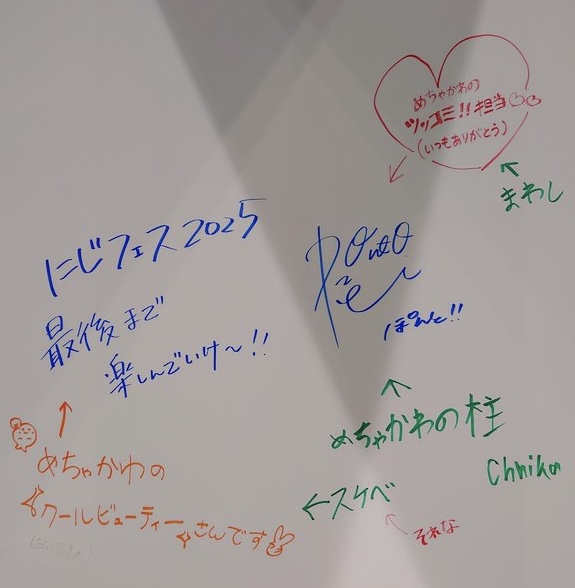 めちゃかわの
ツッコミ!!担当
(いつもありがとう)
まわし
にじフェス2025
最後まで
楽しんでいけ〜!!
ぽんと!!
めちゃかわの
クールビューティーさんです
めちゃかわの柱
Chnika
スケベ
それな